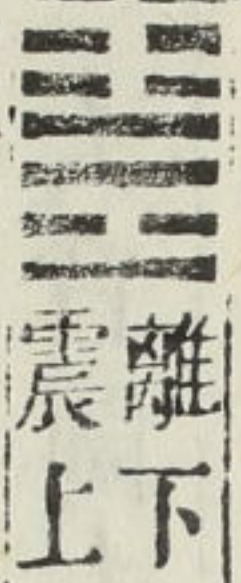 離下
震上